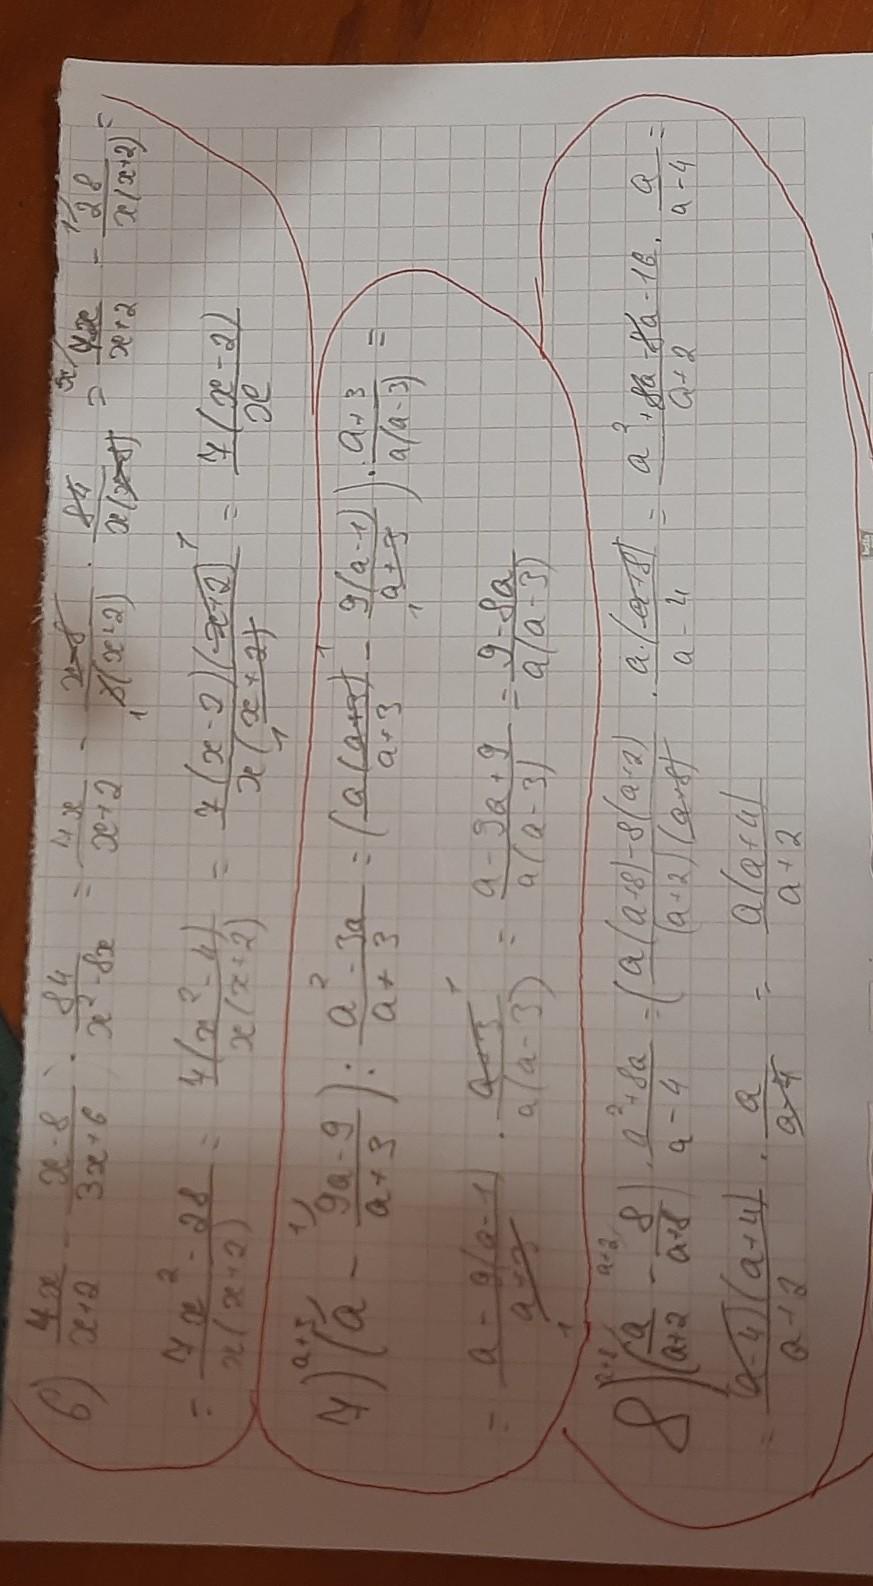 6) 7x/(x+2) - (x-8)/(3x+6) · 84/(x²-8x) = 7x/(x+2) - (x-8)/(3(x+2)) · 84/(x(x-8)) = 7x/(x+2) - 28/(x(x+2)) =
= (7x²-28)/(x(x+2)) = 7(x²-4)/(x(x+2)) = 7(x-2)(x+2)/(x(x+2)) = 7(x-2)/x
7) (a - (9a-9)/(a+3)) : (a²-3a)/(a+3) = (a(a+3)/(a+3) - 9(a-1)/(a+3)) · (a+3)/(a(a-3)) =
= (a-9(a-1))/(a+3) · (a+3)/(a(a-3)) = (a-9a+9)/(a(a-3)) = (9-8a)/(a(a-3))
8) (a/(a+2) - 8/(a+8)) · (a²+8a)/(a-4) = (a(a+8)-8(a+2))/((a+2)(a+8)) · a·(a+8)/(a-4) = (a²+8a-8a-16)/(a+2) · a/(a-4) =
= (a-4)(a+4)/(a+2) · a/(a-4) = a(a+4)/(a+2)